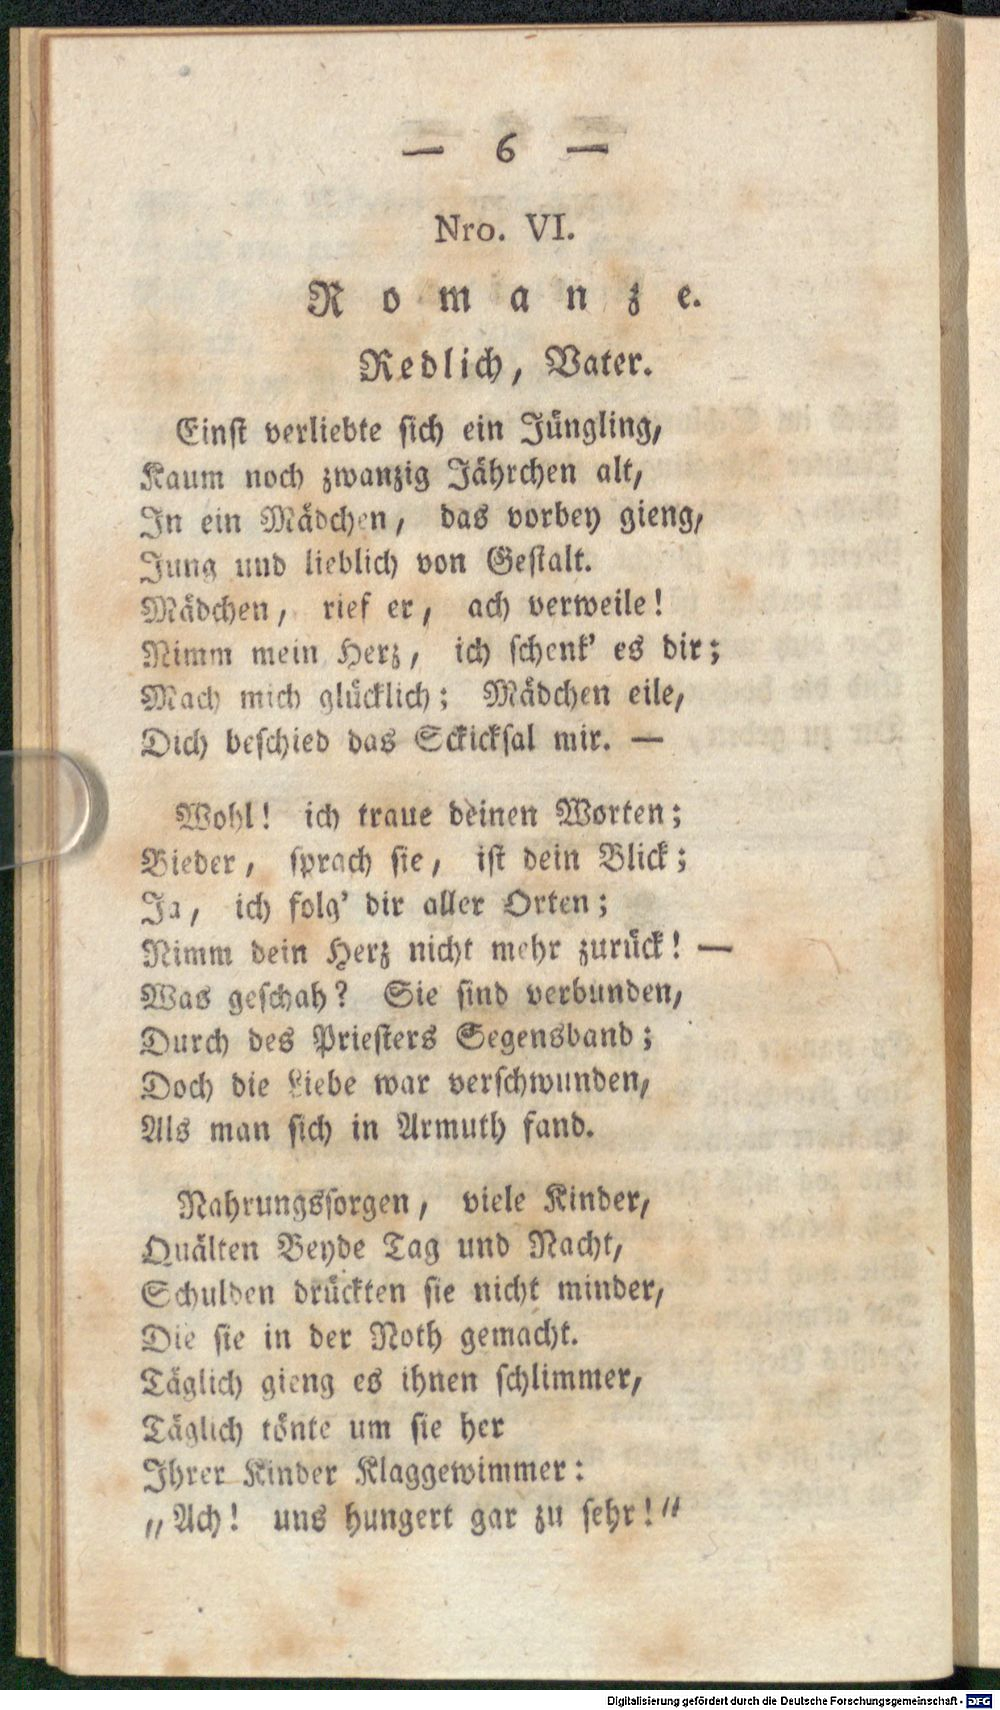 — 6 —
Nro. VI.
Romanze.
Redlich, Vater.
Einst verliebte sich ein Jüngling,
Kaum noch zwanzig Jährchen alt,
In ein Mädchen, das vorbey gieng,
Jung und lieblich von Gestalt.
Mädchen, rief er, ach verweile!
Nimm mein Herz, ich schenk' es dir;
Mach mich glücklich; Mädchen eile,
Dich beschied das Sckicksal mir. —
Wohl! ich traue deinen Worten;
Bieder, sprach sie, ist dein Blick;
Ja, ich folg' dir aller Orten;
Nimm dein Herz nicht mehr zurück! —
Was geschah? Sie sind verbunden,
Durch des Priesters Segensband;
Doch die Liebe war verschwunden,
Als man sich in Armuth fand.
Nahrungssorgen, viele Kinder,
Quälten Beyde Tag und Nacht,
Schulden drückten sie nicht minder,
Die sie in der Noth gemacht.
Täglich gieng es ihnen schlimmer,
Täglich tönte um sie her
Ihrer Kinder Klaggewimmer:
„Ach! uns hungert gar zu sehr!“
Digitalisierung gefördert durch die Deutsche Forschungsgemeinschaft - DFG